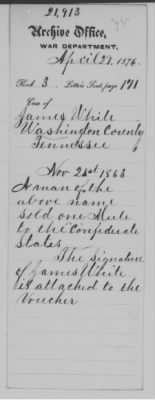 21,913
Archive Office,
WAR DEPARTMENT,
April 27, 1876.
Book 3. Letters Sent, page 171
Case of
James White
Washington County
Tennessee
Nov 23d 1863
A man of the
above name
sold one Mule
to the Confederate
States
The signature
of James White
is attached to the
Voucher